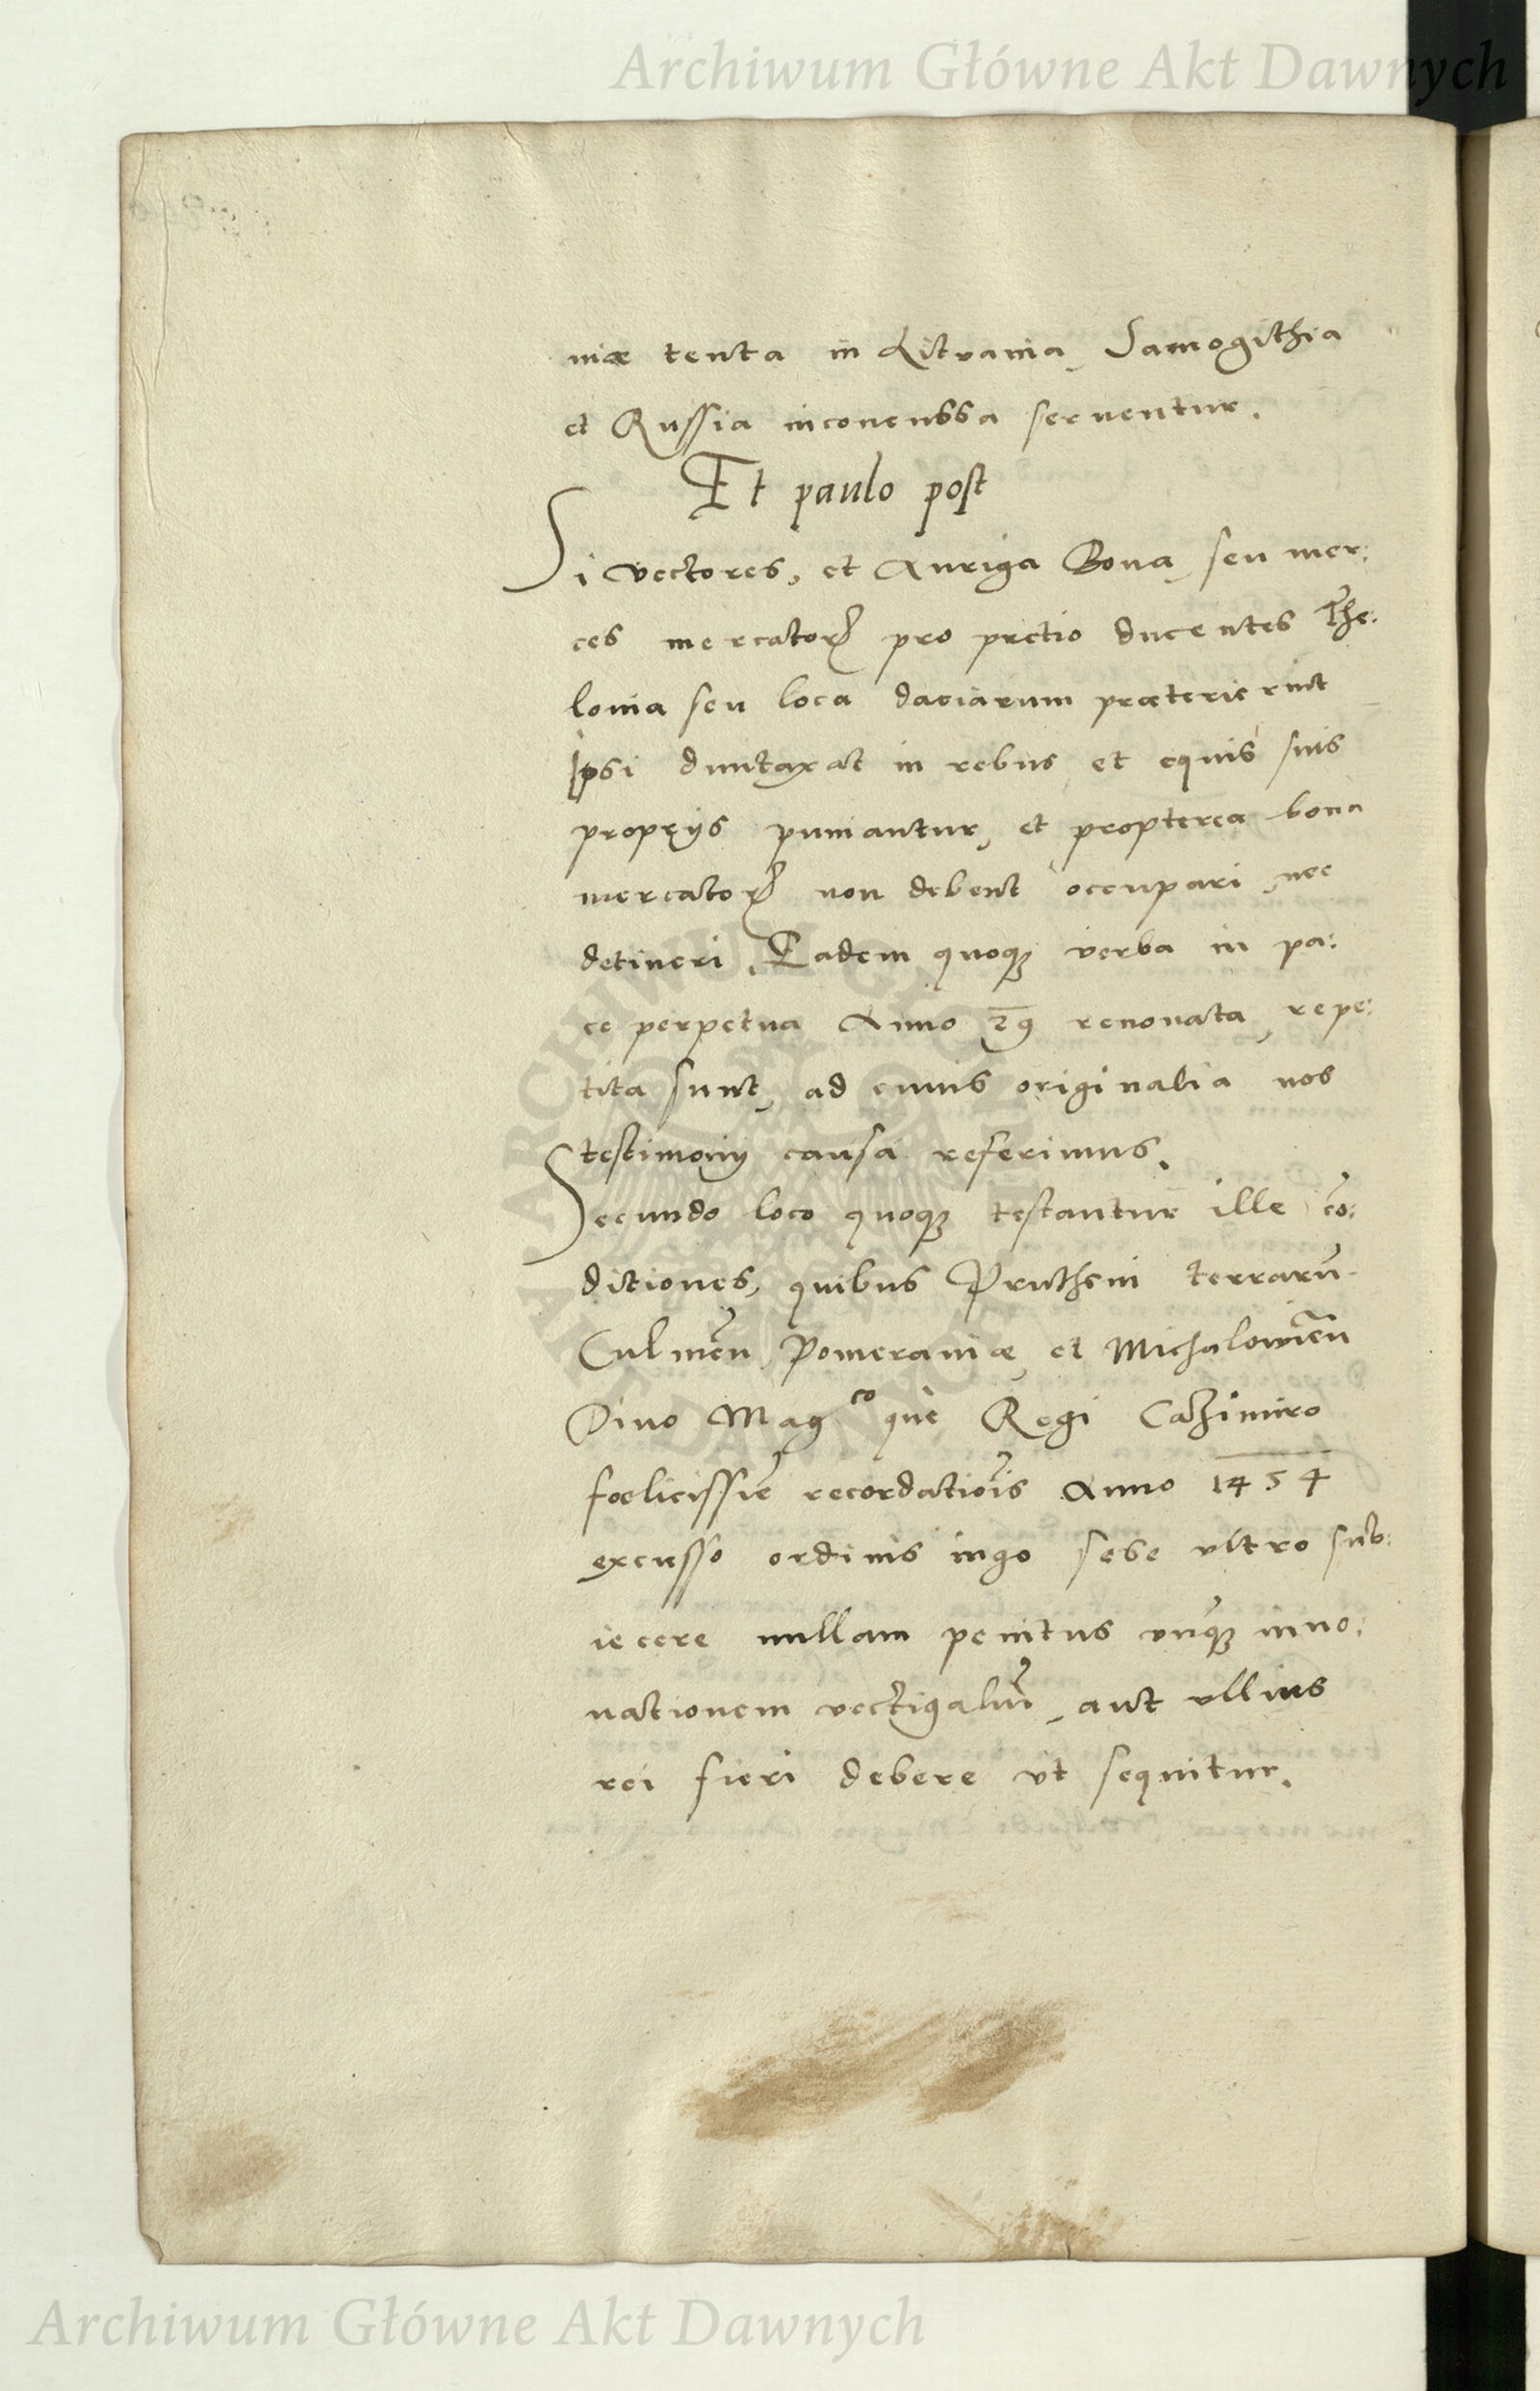 Archiwum Główne Akt Dawnych
niæ tenta in Litvania, Samogithia
et Russia inconcussa serventur.
Et paulo post
Si vectores, et Auriga Bona, seu mer:
ces mercatorꝝ pro pretio ducentes The:
lonia seu loca daciarum præterierint
Ipsi duntaxat in rebus et equis suis
proprijs puniantur, et propterea bona
mercatorꝝ non debent occupari, nec
detineri. Eadem quoqꝫ verba in pa:
ce perpetua Anno 29 renouata, repe:
tita sunt, ad cuius originalia nos
testimonij causa referimus.
Secundo loco quoqꝫ testantur ille cō:
ditiones, quibus Prutheni terrarū
Culmēn, Pomeraniæ, et Michalowiēn
Diuo Mag^co que Regi Cazimiro
foelicissīe recordatiōis Anno 1454
excusso ordinis iugo sese vltro sub:
iecere nullam penitus vnqꝫ inno:
uationem vectigaliū, aut vllius
rei fieri debere vt sequitur.
ARCHIWUM GŁÓWNE AKT DAWNYCH
Archiwum Główne Akt Dawnych